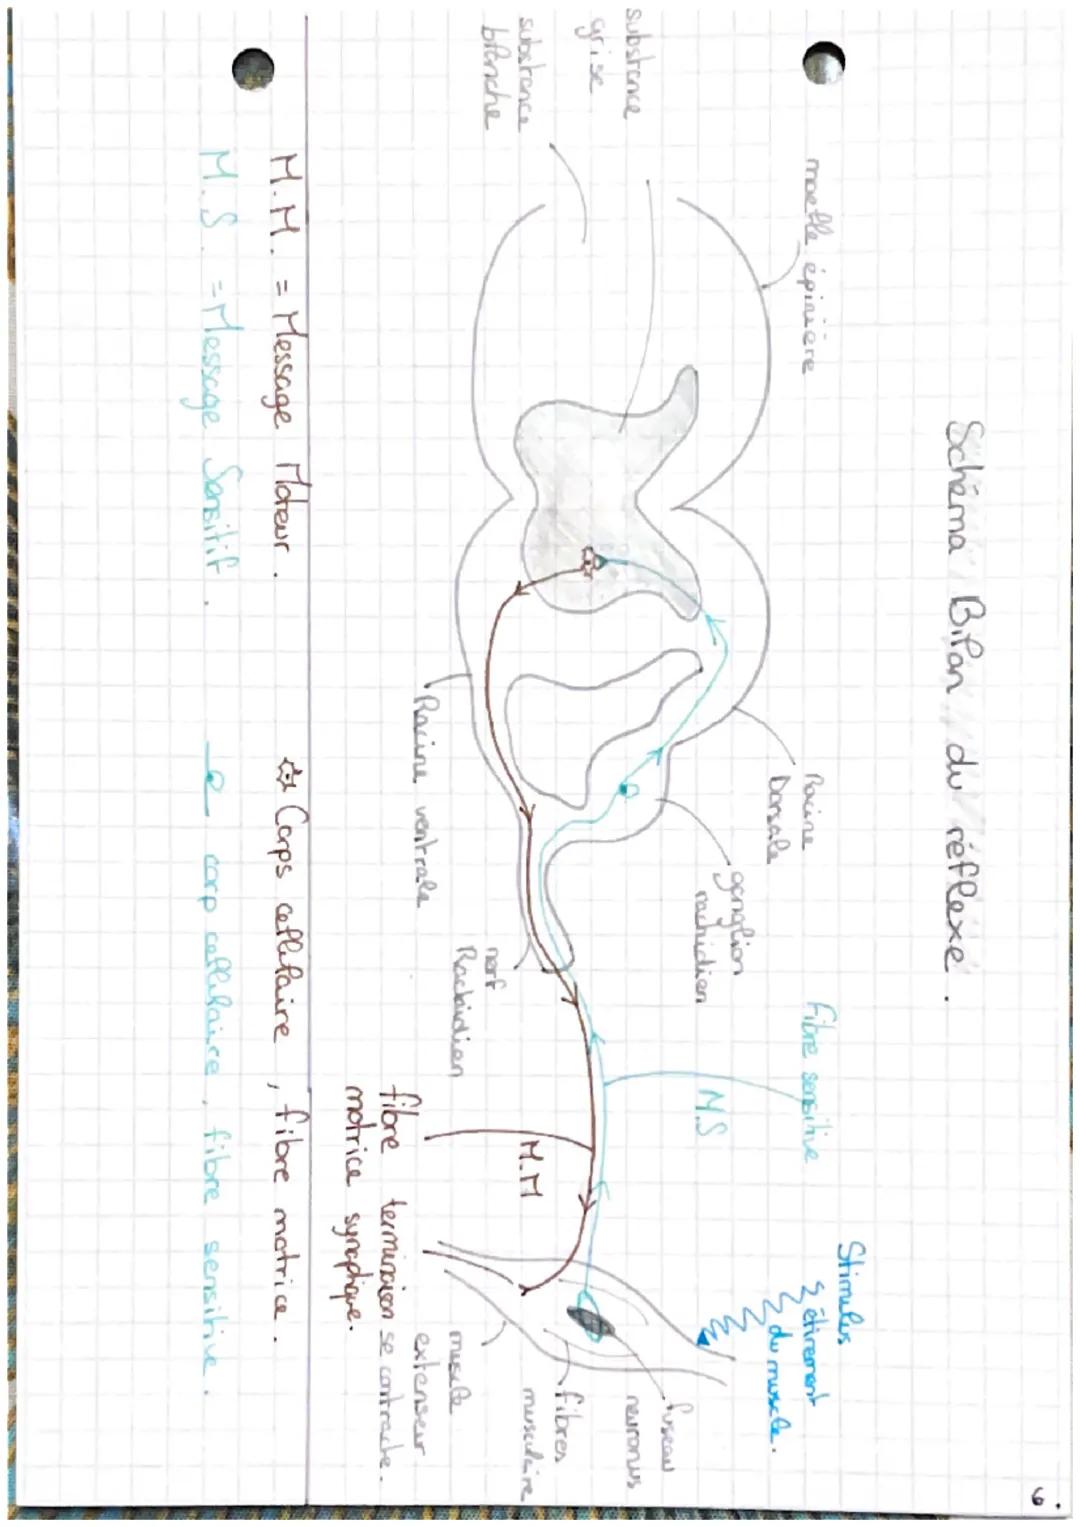 6.
Schéma Bilan du réflexe.
moelle épinière
Racine
Dorsale
ganglion
rachidien
fibre sensitive
M.S
Stimulus
étirement
du muscle.
substance
grise
substance
blanche
fuseau
neuronus
fibres
musculaire
muscle
extenseur
se contracte.
M.M
nerf
Rachidien
Racine ventrale
fibre
motrice
terminaison
synaptique.
M.M. = Message Moteur.
Corps cellulaire, fibre motrice.
M.S. = Message Sensitif.
corp cellulaire, fibre sensitive.